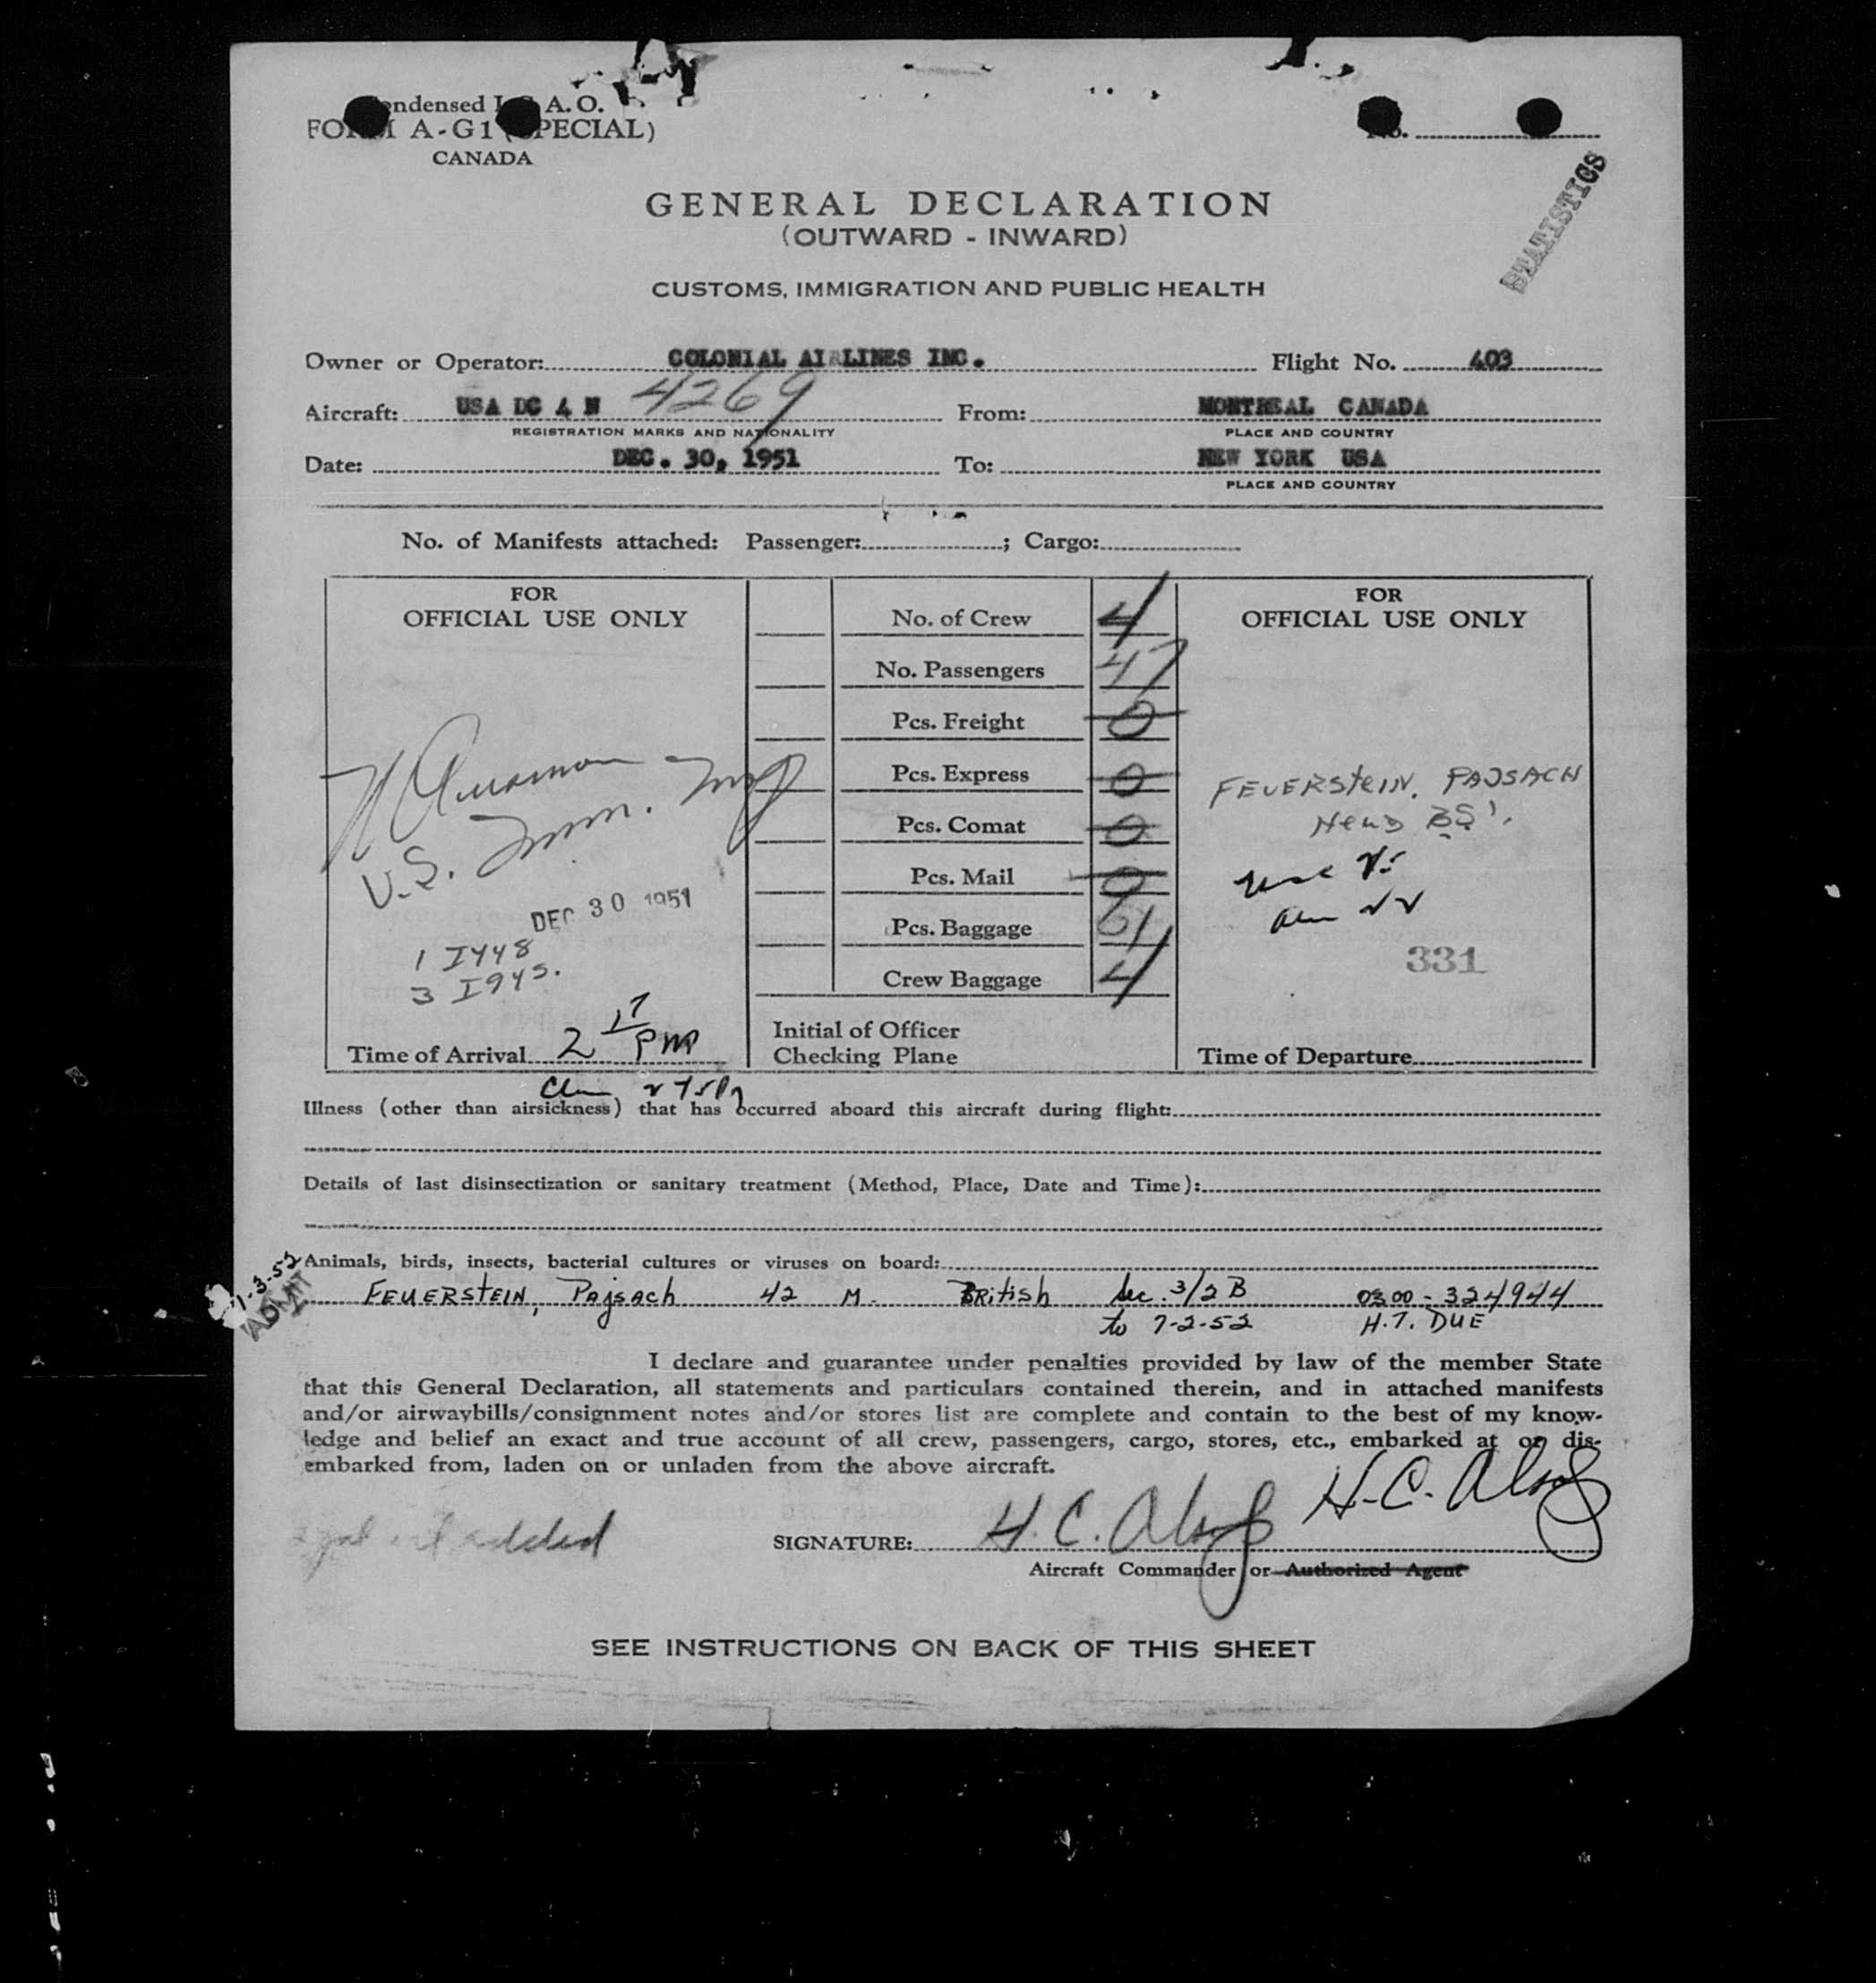 Condensed I.C.A.O.
FORM A-G1 (SPECIAL)
CANADA
No.
STATISTICS
GENERAL DECLARATION
(OUTWARD - INWARD)
CUSTOMS, IMMIGRATION AND PUBLIC HEALTH
Owner or Operator: COLONIAL AIRLINES INC. Flight No. 403
Aircraft: USA DC 4 N 4269 From: MONTREAL CANADA
REGISTRATION MARKS AND NATIONALITY PLACE AND COUNTRY
Date: DEC. 30, 1951 To: NEW YORK USA
PLACE AND COUNTRY
No. of Manifests attached: Passenger: ; Cargo:
FOR
OFFICIAL USE ONLY
U.S. Imm. Insp
DEC 30 1951
1 I448
3 I945.
Time of Arrival 2 17 PM
No. of Crew 4
No. Passengers 47
Pcs. Freight 0
Pcs. Express 0
Pcs. Comat 0
Pcs. Mail 0
Pcs. Baggage 61
Crew Baggage 4
Initial of Officer
Checking Plane
FOR
OFFICIAL USE ONLY
FEUERSteIN, PAJSACH
Held BSI.
331
Time of Departure
Illness (other than airsickness) that has occurred aboard this aircraft during flight:
Details of last disinsectization or sanitary treatment (Method, Place, Date and Time):
Animals, birds, insects, bacterial cultures or viruses on board:
1-3-52
ADMT
FEUERSTEIN, Pajsach 42 M. BRitish Sec. 3/2 B 0300-324944
to 7-2-52 H.T. DUE
I declare and guarantee under penalties provided by law of the member State
that this General Declaration, all statements and particulars contained therein, and in attached manifests
and/or airwaybills/consignment notes and/or stores list are complete and contain to the best of my know-
ledge and belief an exact and true account of all crew, passengers, cargo, stores, etc., embarked at or dis-
embarked from, laden on or unladen from the above aircraft.
added
SIGNATURE: H. C. H.-C.
Aircraft Commander or Authorized Agent
SEE INSTRUCTIONS ON BACK OF THIS SHEET